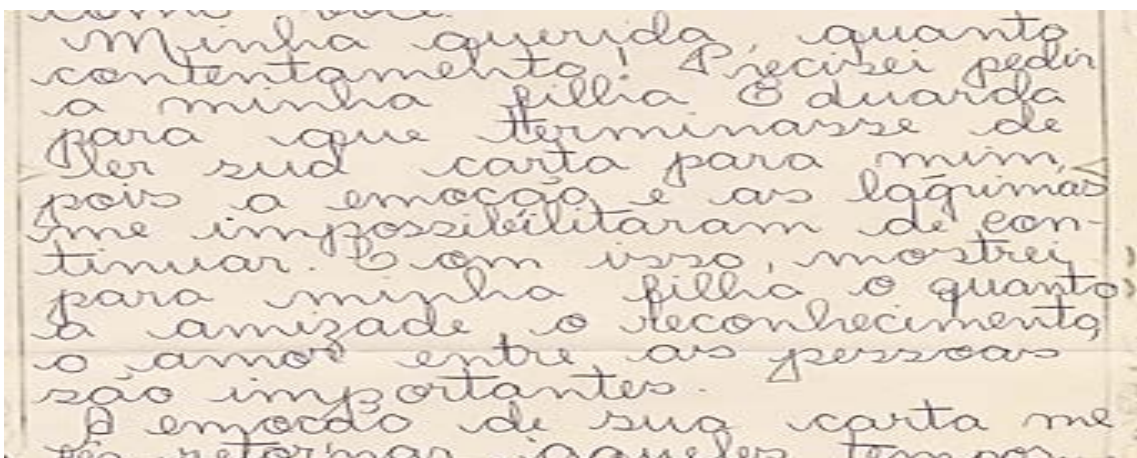 como você.
Minha querida, quanto
contentamento! Precisei pedir
a minha filha Eduarda
para que terminasse de
ler sua carta para mim,
pois a emoção e as lágrimas
me impossibilitaram de con-
tinuar. Com isso, mostrei
para minha filha o quanto
a amizade, o reconhecimento,
o amor entre as pessoas
são importantes.
A emoção de sua carta me
fez retornar àqueles tempos